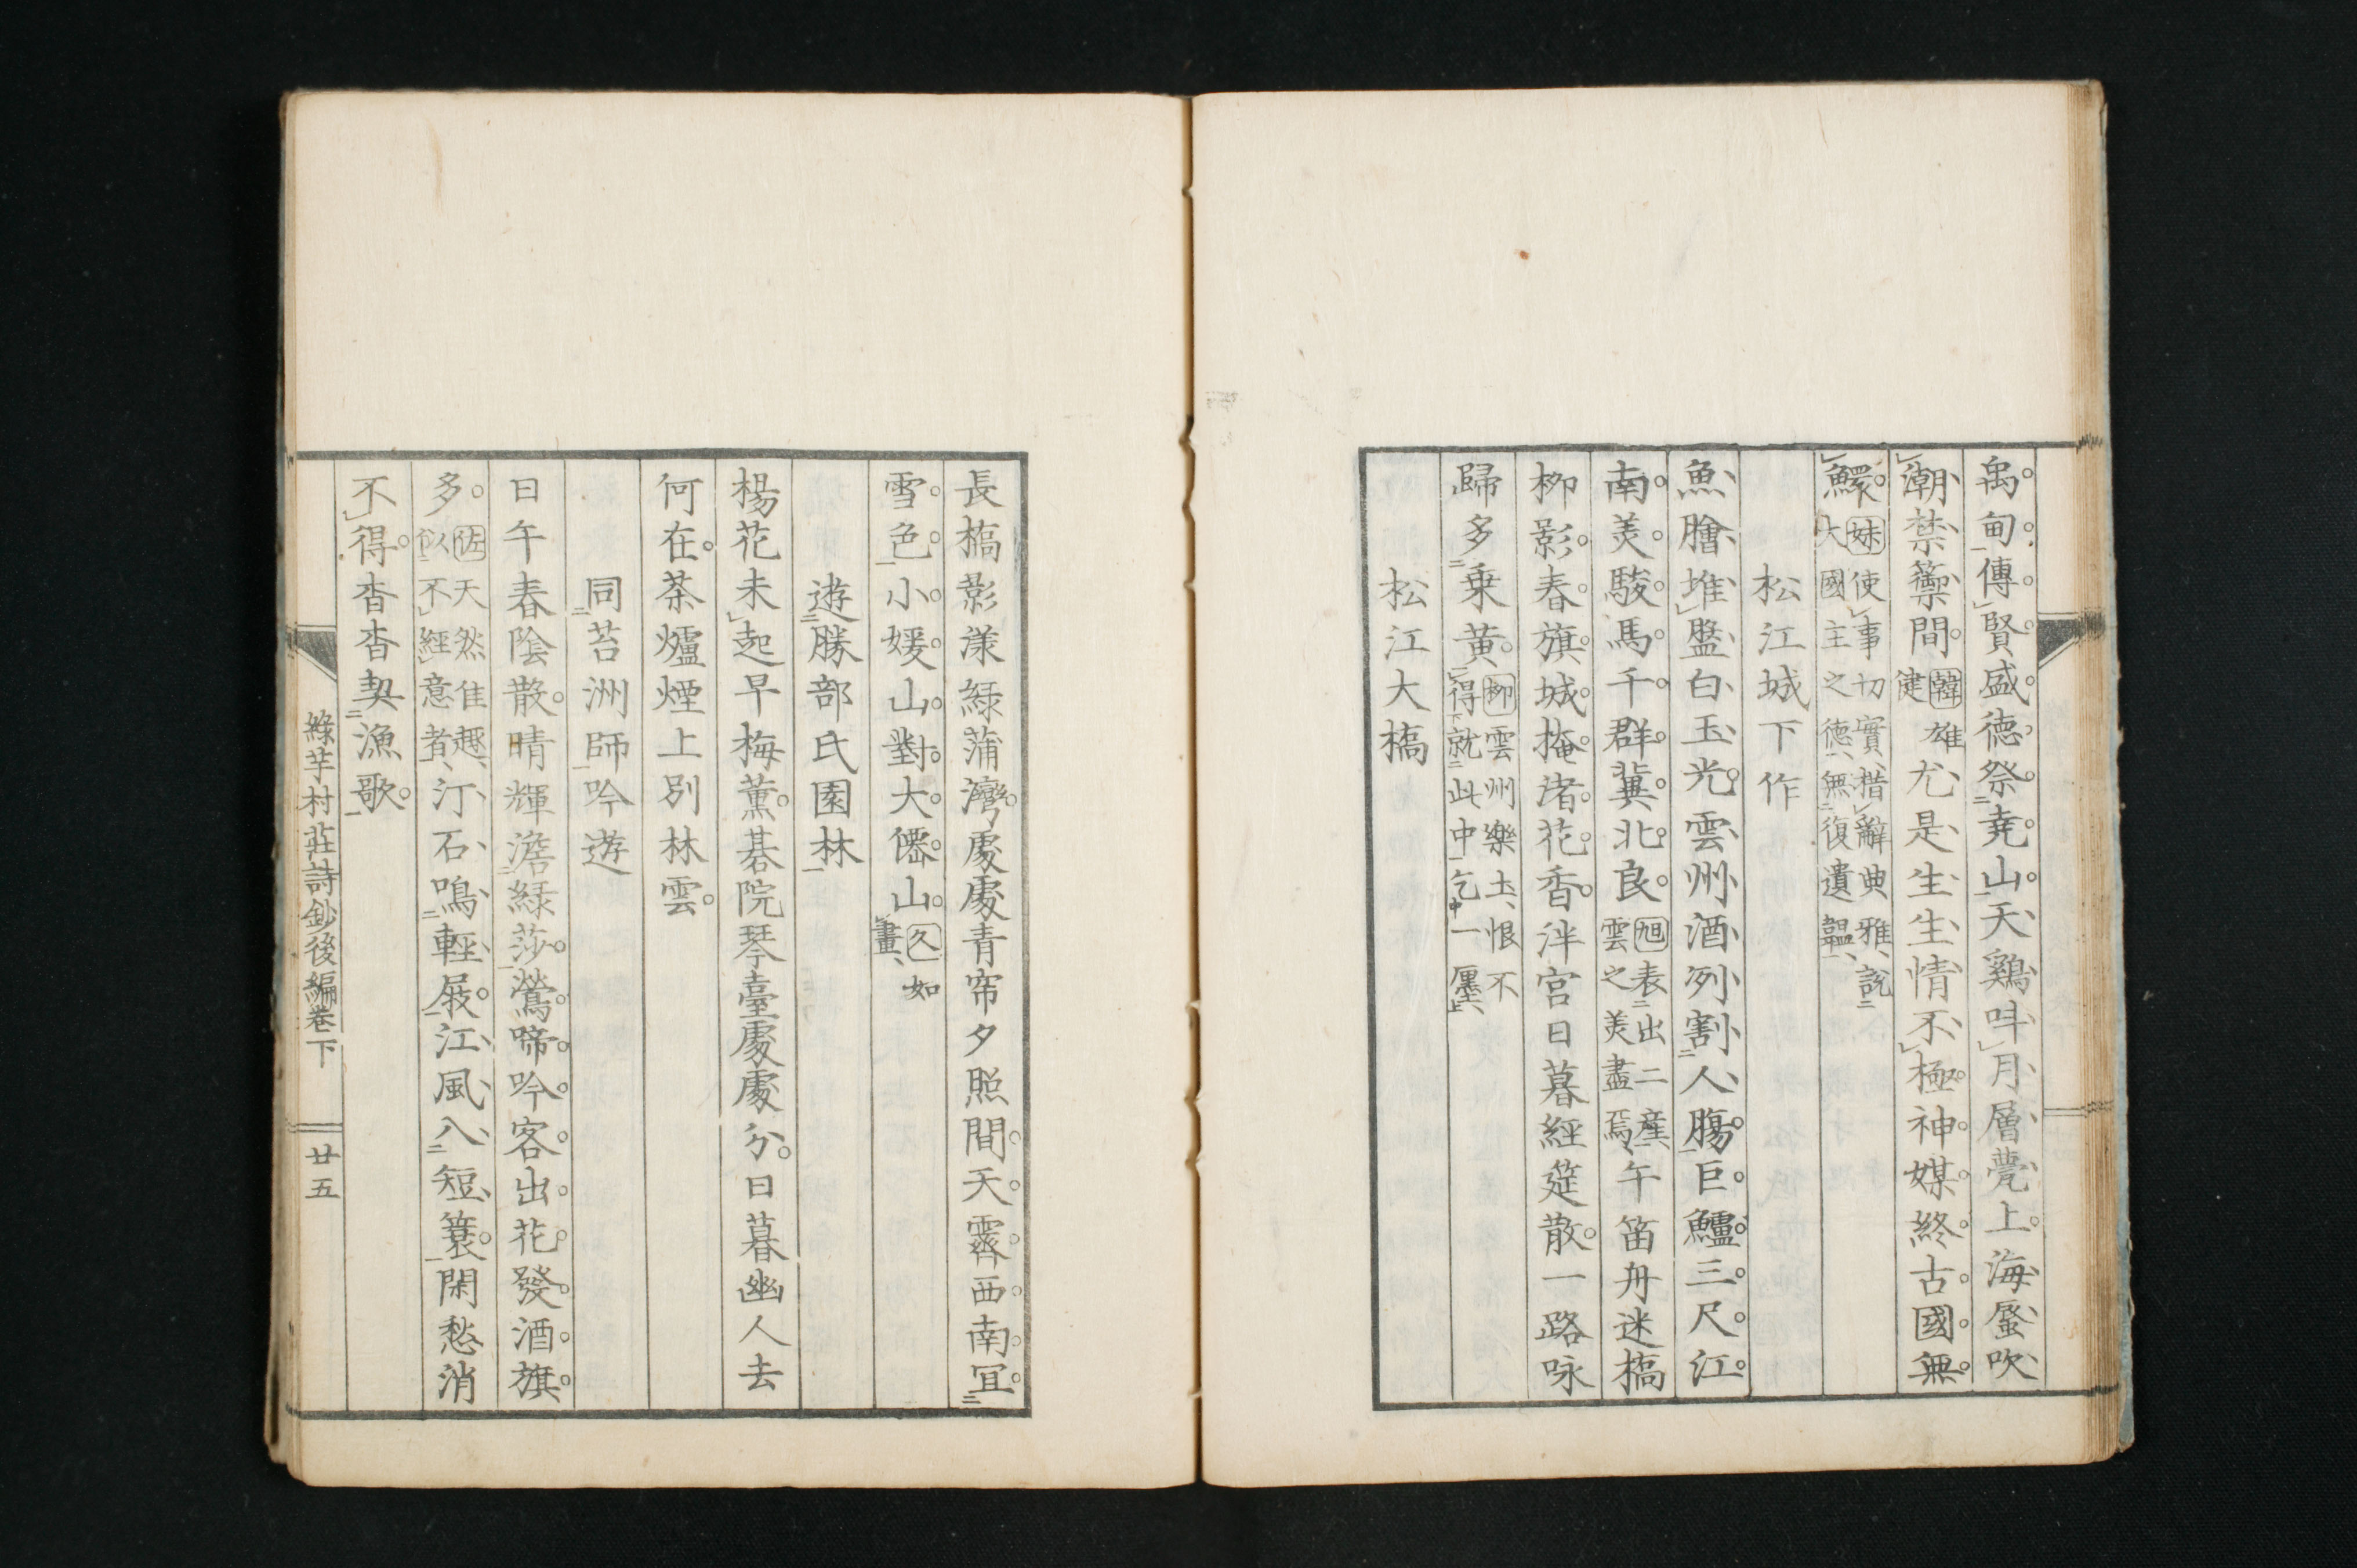 禹甸傳賢盛德祭堯山天鷄叫月層甍上海蜃吹
潮禁籞間韓雄健尤是生生情不極神媒終古國無
鰥妹使事切實措辭典雅説大國主之德無復遺韞
松江城下作
魚膾堆盤白玉光雲州酒冽割人膓巨鱸三尺江
南美駿馬千群冀北良旭表出二產雲之美盡焉午笛舟迷橋
柳影春旗城掩渚花香泮宮日暮經筵散一路咏
歸多乗黄柳雲州樂土恨不得就此中乞一厘
松江大橋
長橋影漾緑蒲灣處處青帘夕照間天霽西南冝
雪色小媛山對大僊山久如畫
遊勝部氏園林
楊花未起早梅薫碁院琴臺處處分日暮幽人去
何在茶爐煙上別林雲
同苔洲師吟遊
日午春陰散晴輝澹緑莎鶯啼吟客出花發酒旗
多佐天然佳趣似不經意者汀石鳴輕屐江風入短簑閑愁消
不得杳杳契漁歌
綠芋村莊詩鈔後編卷下
廿五